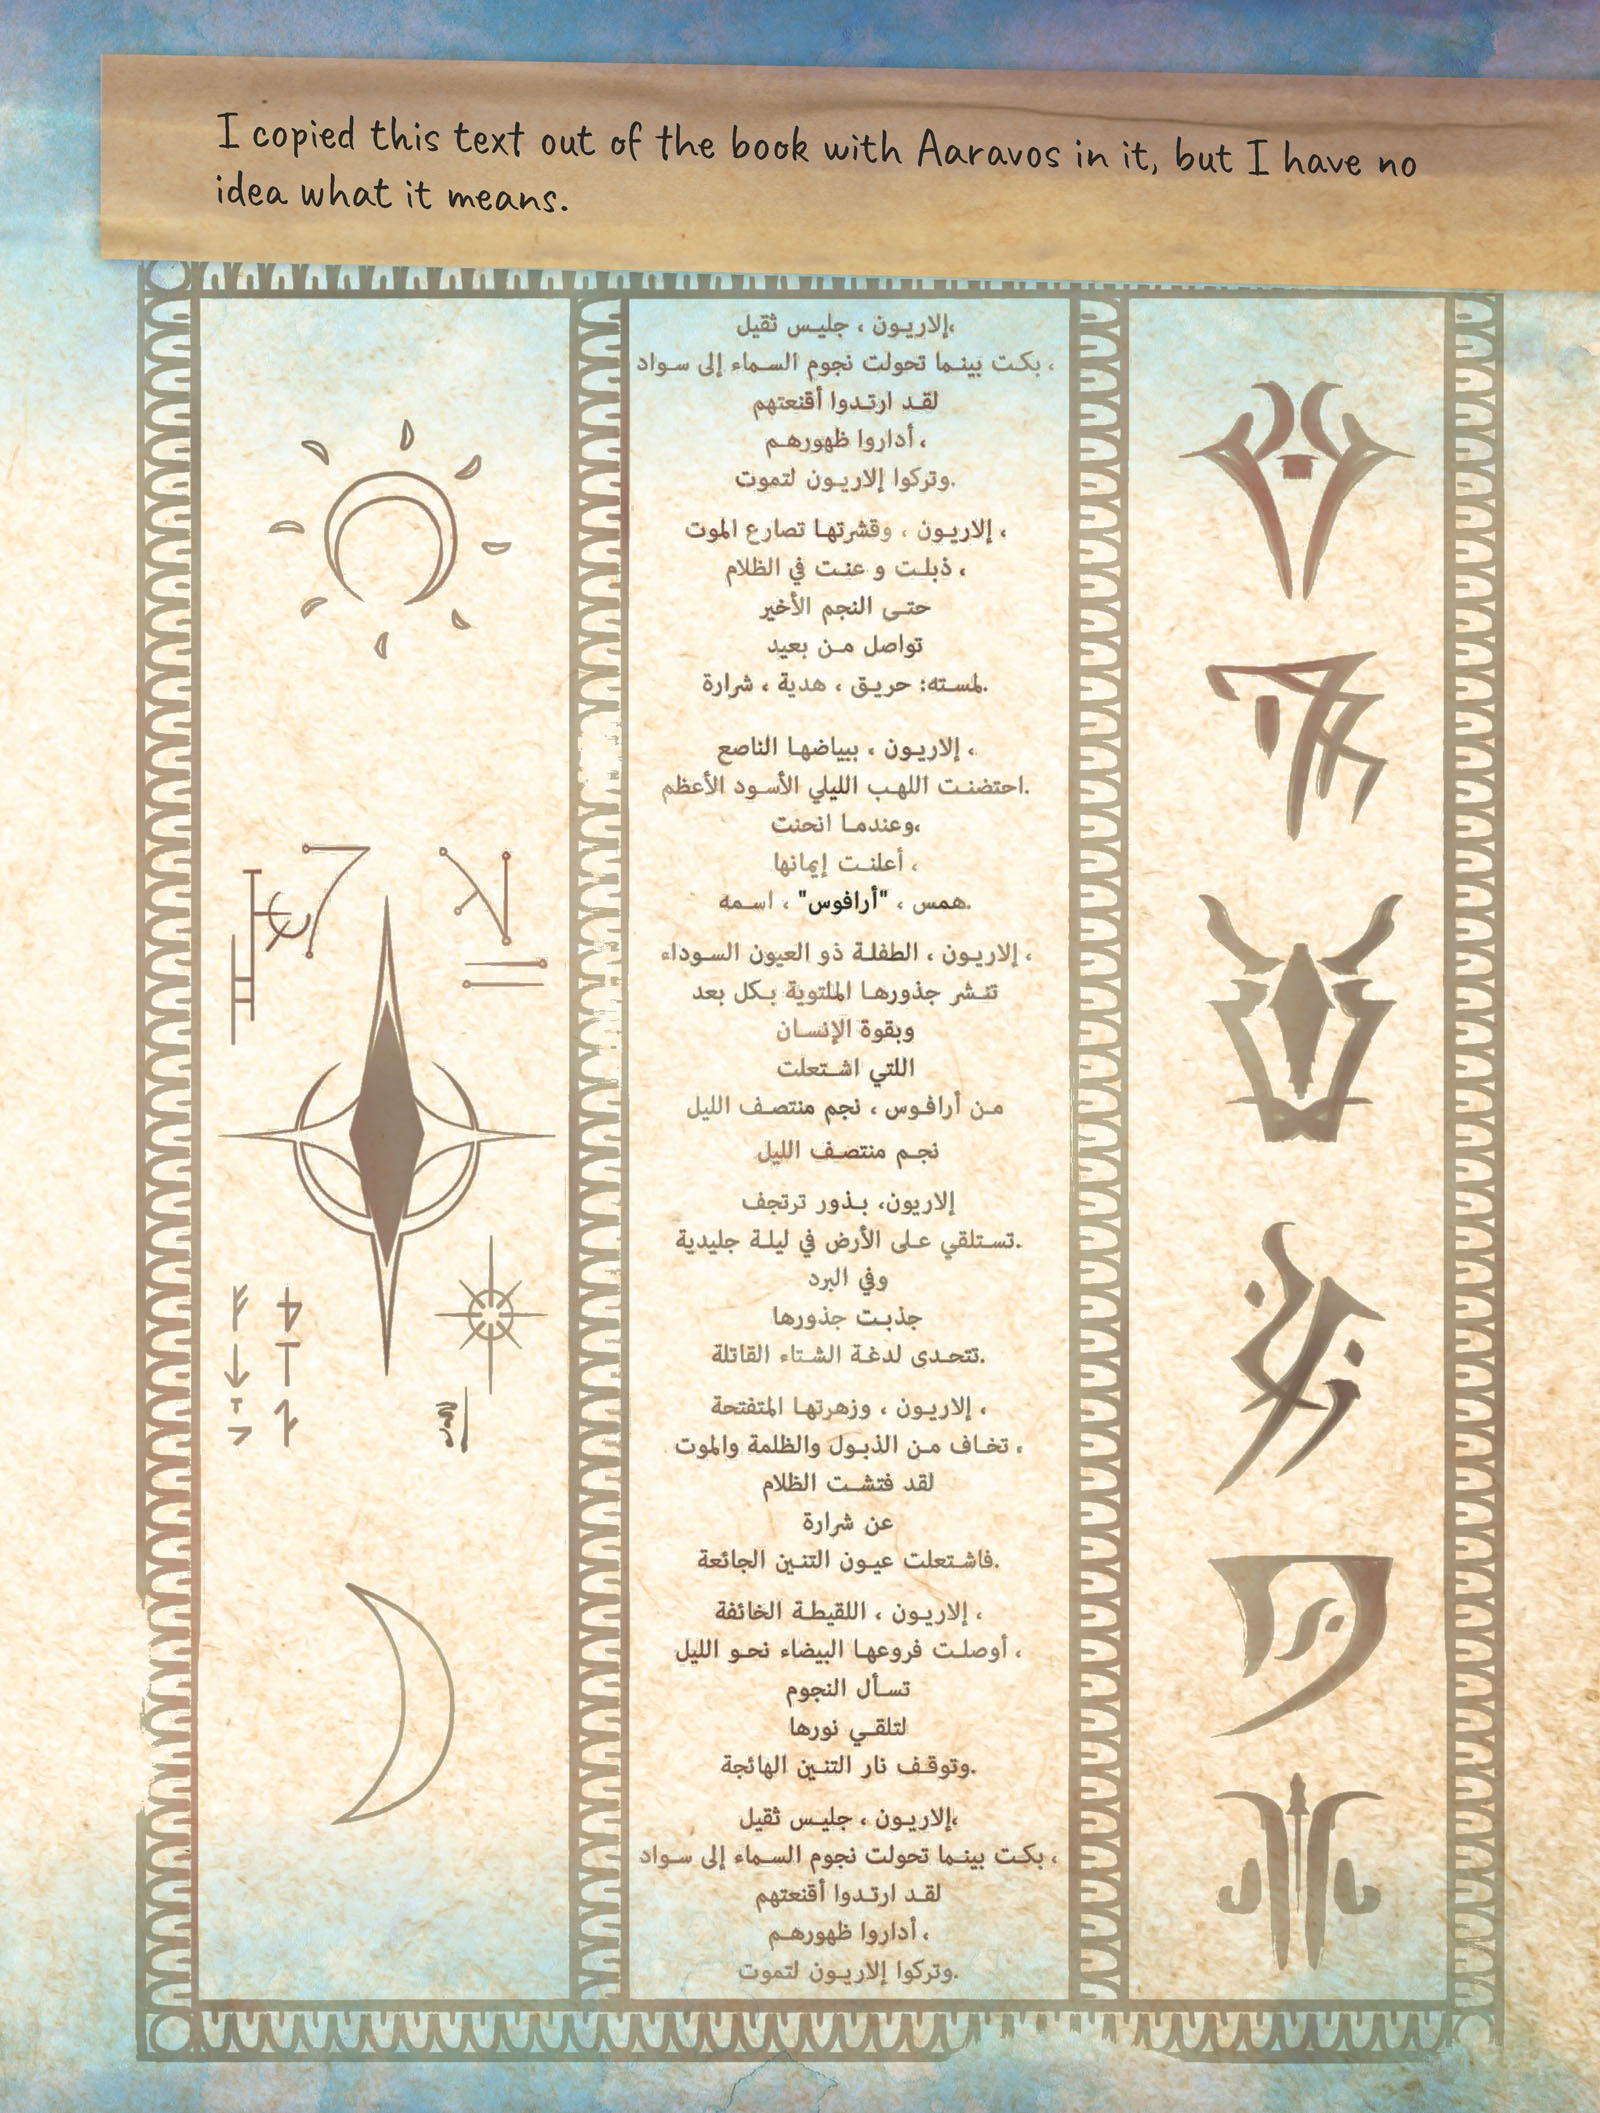 I copied this text out of the book with Aaravos in it, but I have no
idea what it means.
إلاريون ، جليس ثقيل،
بكت بينما تحولت نجوم السماء إلى سواد ،
لقد ارتدوا أقنعتهم
أداروا ظهورهم ،
وتركوا إلاريون لتموت.
إلاريون ، وقشرتها تصارع الموت ،
ذبلت و عنت في الظلام ،
حتى النجم الأخير
تواصل من بعيد
لمسته: حريق ، هدية ، شرارة.
إلاريون ، ببياضها الناصع ،
احتضنت اللهب الليلي الأسود الأعظم.
وعندما انحنت،
أعلنت إيمانها ،
همس ، "أرافوس" ، اسمه.
إلاريون ، الطفلة ذو العيون السوداء ،
تنشر جذورها الملتوية بكل بعد
وبقوة الإنسان
اللتي اشتعلت
من أرافوس ، نجم منتصف الليل
نجم منتصف الليل
إلاريون، بذور ترتجف
تستلقي على الأرض في ليلة جليدية.
وفي البرد
جذبت جذورها
تتحدى لدغة الشتاء القاتلة.
إلاريون ، وزهرتها المتفتحة ،
تخاف من الذبول والظلمة والموت ،
لقد فتشت الظلام
عن شرارة
فاشتعلت عيون التنين الجائعة.
إلاريون ، اللقيطة الخائفة ،
أوصلت فروعها البيضاء نحو الليل ،
تسأل النجوم
لتلقي نورها
وتوقف نار التنين الهائجة.
إلاريون ، جليس ثقيل،
بكت بينما تحولت نجوم السماء إلى سواد ،
لقد ارتدوا أقنعتهم
أداروا ظهورهم ،
وتركوا إلاريون لتموت.